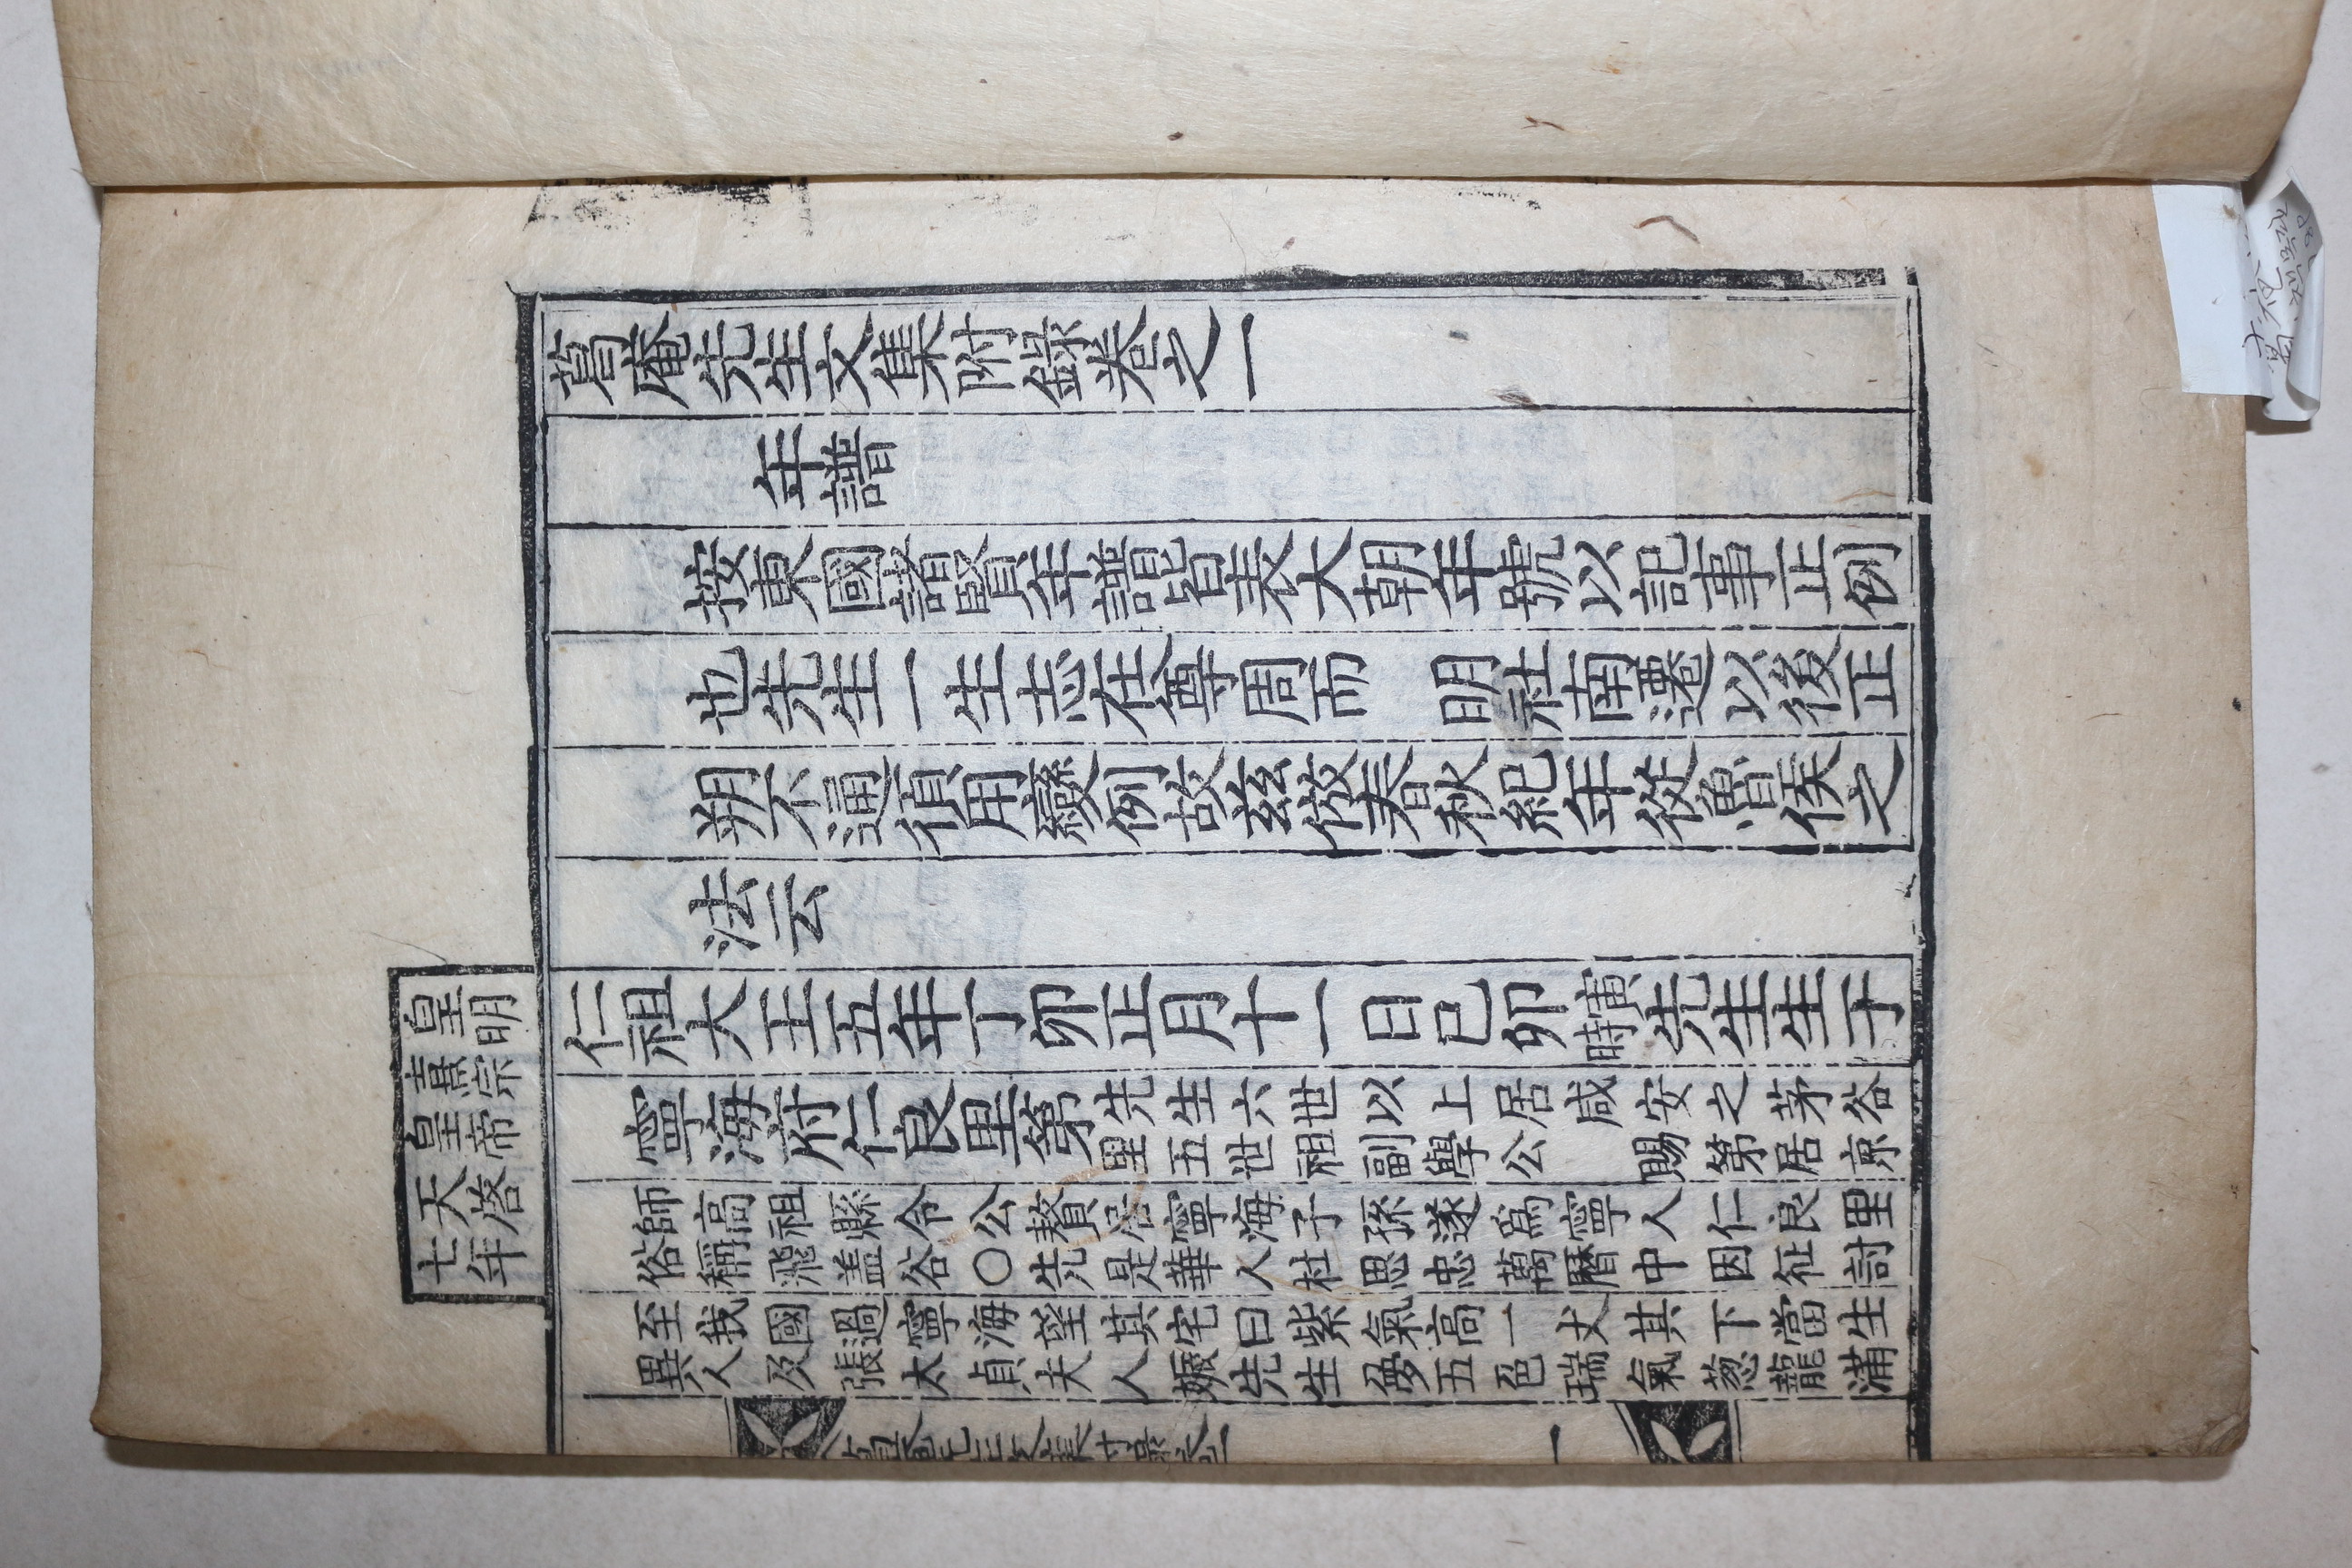 葛庵先生文集附錄卷之一
年譜
按東國諸賢年譜皆表大朝年號以記事正例
也先生一生志在尊周而　明社南遷以後正
朔不通須用變例故玆倣春秋紀年從魯侯之
法云
皇明
熹宗
皇帝
天啓
七年
仁祖大王五年丁卯正月十一日己卯寅時先生生于
寧海府仁良里第先生六世以上居咸安之茅谷
里五世祖副學公　賜第居京
師高祖縣令公贅居寧海子孫遂爲寧人仁良里
俗稱飛盖谷〇先是華人杜思忠萬曆中因征討
至我國過寧海望其宅曰紫氣高一丈其下當生
異人及張太貞夫人娠先生夢五色瑞氣葱籠滿
葛庵先生文集附錄卷一　一